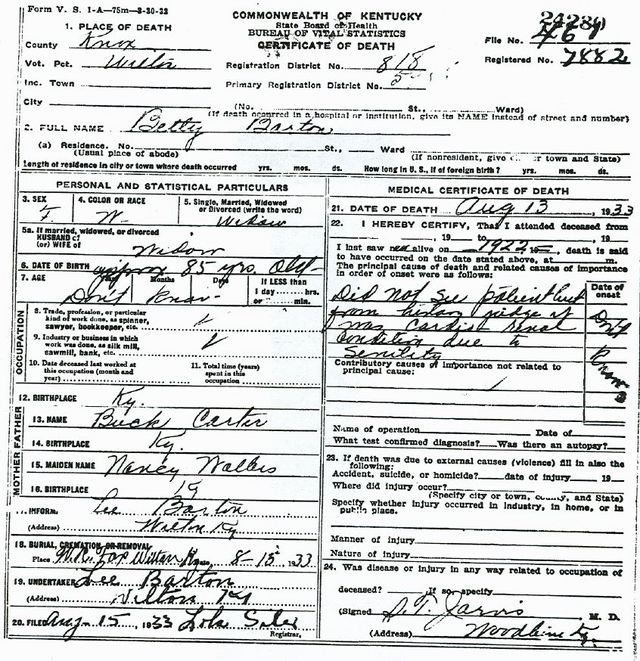 Form V. S. 1-A—75m—8-30-32
COMMONWEALTH OF KENTUCKY
State Board of Health
BUREAU OF VITAL STATISTICS
CERTIFICATE OF DEATH
File No.
Registered No. 7882
1. PLACE OF DEATH
County Knox
Vot. Pct. Wilton
Inc. Town
City
Registration District No. 818
Primary Registration District No.
(No. St., Ward)
(If death occurred in a hospital or institution, give its NAME instead of street and number)
2. FULL NAME Betty Barton
(a) Residence. No. St., Ward
(Usual place of abode)
(If nonresident, give city or town and State)
Length of residence in city or town where death occurred yrs. mos. ds. How long in U. S., if of foreign birth? yrs. mos. ds.
PERSONAL AND STATISTICAL PARTICULARS
3. SEX F
4. COLOR OR RACE W
5. Single, Married, Widowed
or Divorced (write the word)
Widow
5a. If married, widowed, or divorced
HUSBAND of
(or) WIFE of Widow
6. DATE OF BIRTH approx 85 yrs. Old
7. AGE Years Months Days
Don't Know
If LESS than
1 day hrs.
or min.
OCCUPATION
8. Trade, profession, or particular
kind of work done, as spinner,
sawyer, bookkeeper, etc.
9. Industry or business in which
work was done, as silk mill,
sawmill, bank, etc.
10. Date deceased last worked at
this occupation (month and
year)
11. Total time (years)
spent in this
occupation
12. BIRTHPLACE Ky.
FATHER
13. NAME Buck Carter
14. BIRTHPLACE Ky.
MOTHER
15. MAIDEN NAME Nancy Wallers
16. BIRTHPLACE Ky
INFORM. Lee Barton
(Address) Wilton Ky
18. BURIAL, CREMATION OR REMOVAL
Place Date 8-15, 1933
19. UNDERTAKER Lee Barton
(Address) Wilton Ky
20. FILED Aug 15, 1933 Lola Siler
Registrar.
MEDICAL CERTIFICATE OF DEATH
21. DATE OF DEATH Aug 13 1933
22. I HEREBY CERTIFY, That I attended deceased
from , 19 to , 19
I last saw alive on 1922 19 , death is said
to have occurred on the date stated above, at m.
The principal cause of death and related causes of importance
in order of onset were as follows:
Date of
onset
Did not see patient but
from history judge it
was Cardio renal
Condition due to
Senility
Don't
Know
Contributory causes of importance not related to
principal cause:
Name of operation Date of
What test confirmed diagnosis? Was there an autopsy?
23. If death was due to external causes (violence) fill in also the
following:
Accident, suicide, or homicide? date of injury 19
Where did injury occur?
(Specify city or town, county, and State)
Specify whether injury occurred in industry, in home, or in
public place.
Manner of injury
Nature of injury
24. Was disease or injury in any way related to occupation of
deceased? If so specify
(Signed) Jarvis M. D.
(Address) Woodbine Ky.